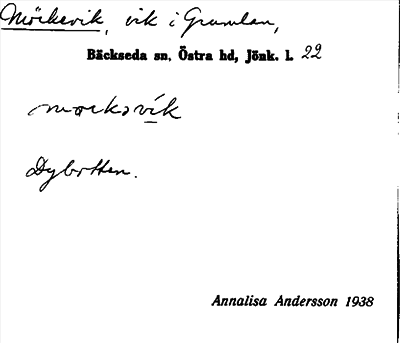 Mörksvik, vik i Grumlan,
Bäckseda sn, Östra hd, Jönk. l. 22
mörksvik
Dybotten.
Annalisa Andersson 1938